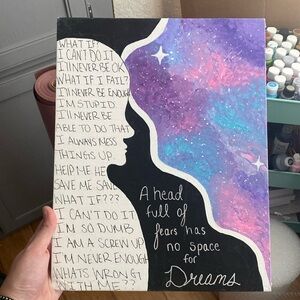 WHAT IF?
I CAN'T DO IT
I'LL NEVER BE OK
WHAT IF I FAIL?
I'LL NEVER BE ENOUGH
I'M STUPID
I'LL NEVER BE
ABLE TO DO THAT
I ALWAYS MESS
THINGS UP
HELP ME
SAVE ME
WHAT IF???
I CAN'T DO IT
I'M SO DUMB
I AM A SCREW UP
I'M NEVER ENOUGH
WHATS WRONG
WITH ME??
A head
full of
fears has
no space
for
Dreams